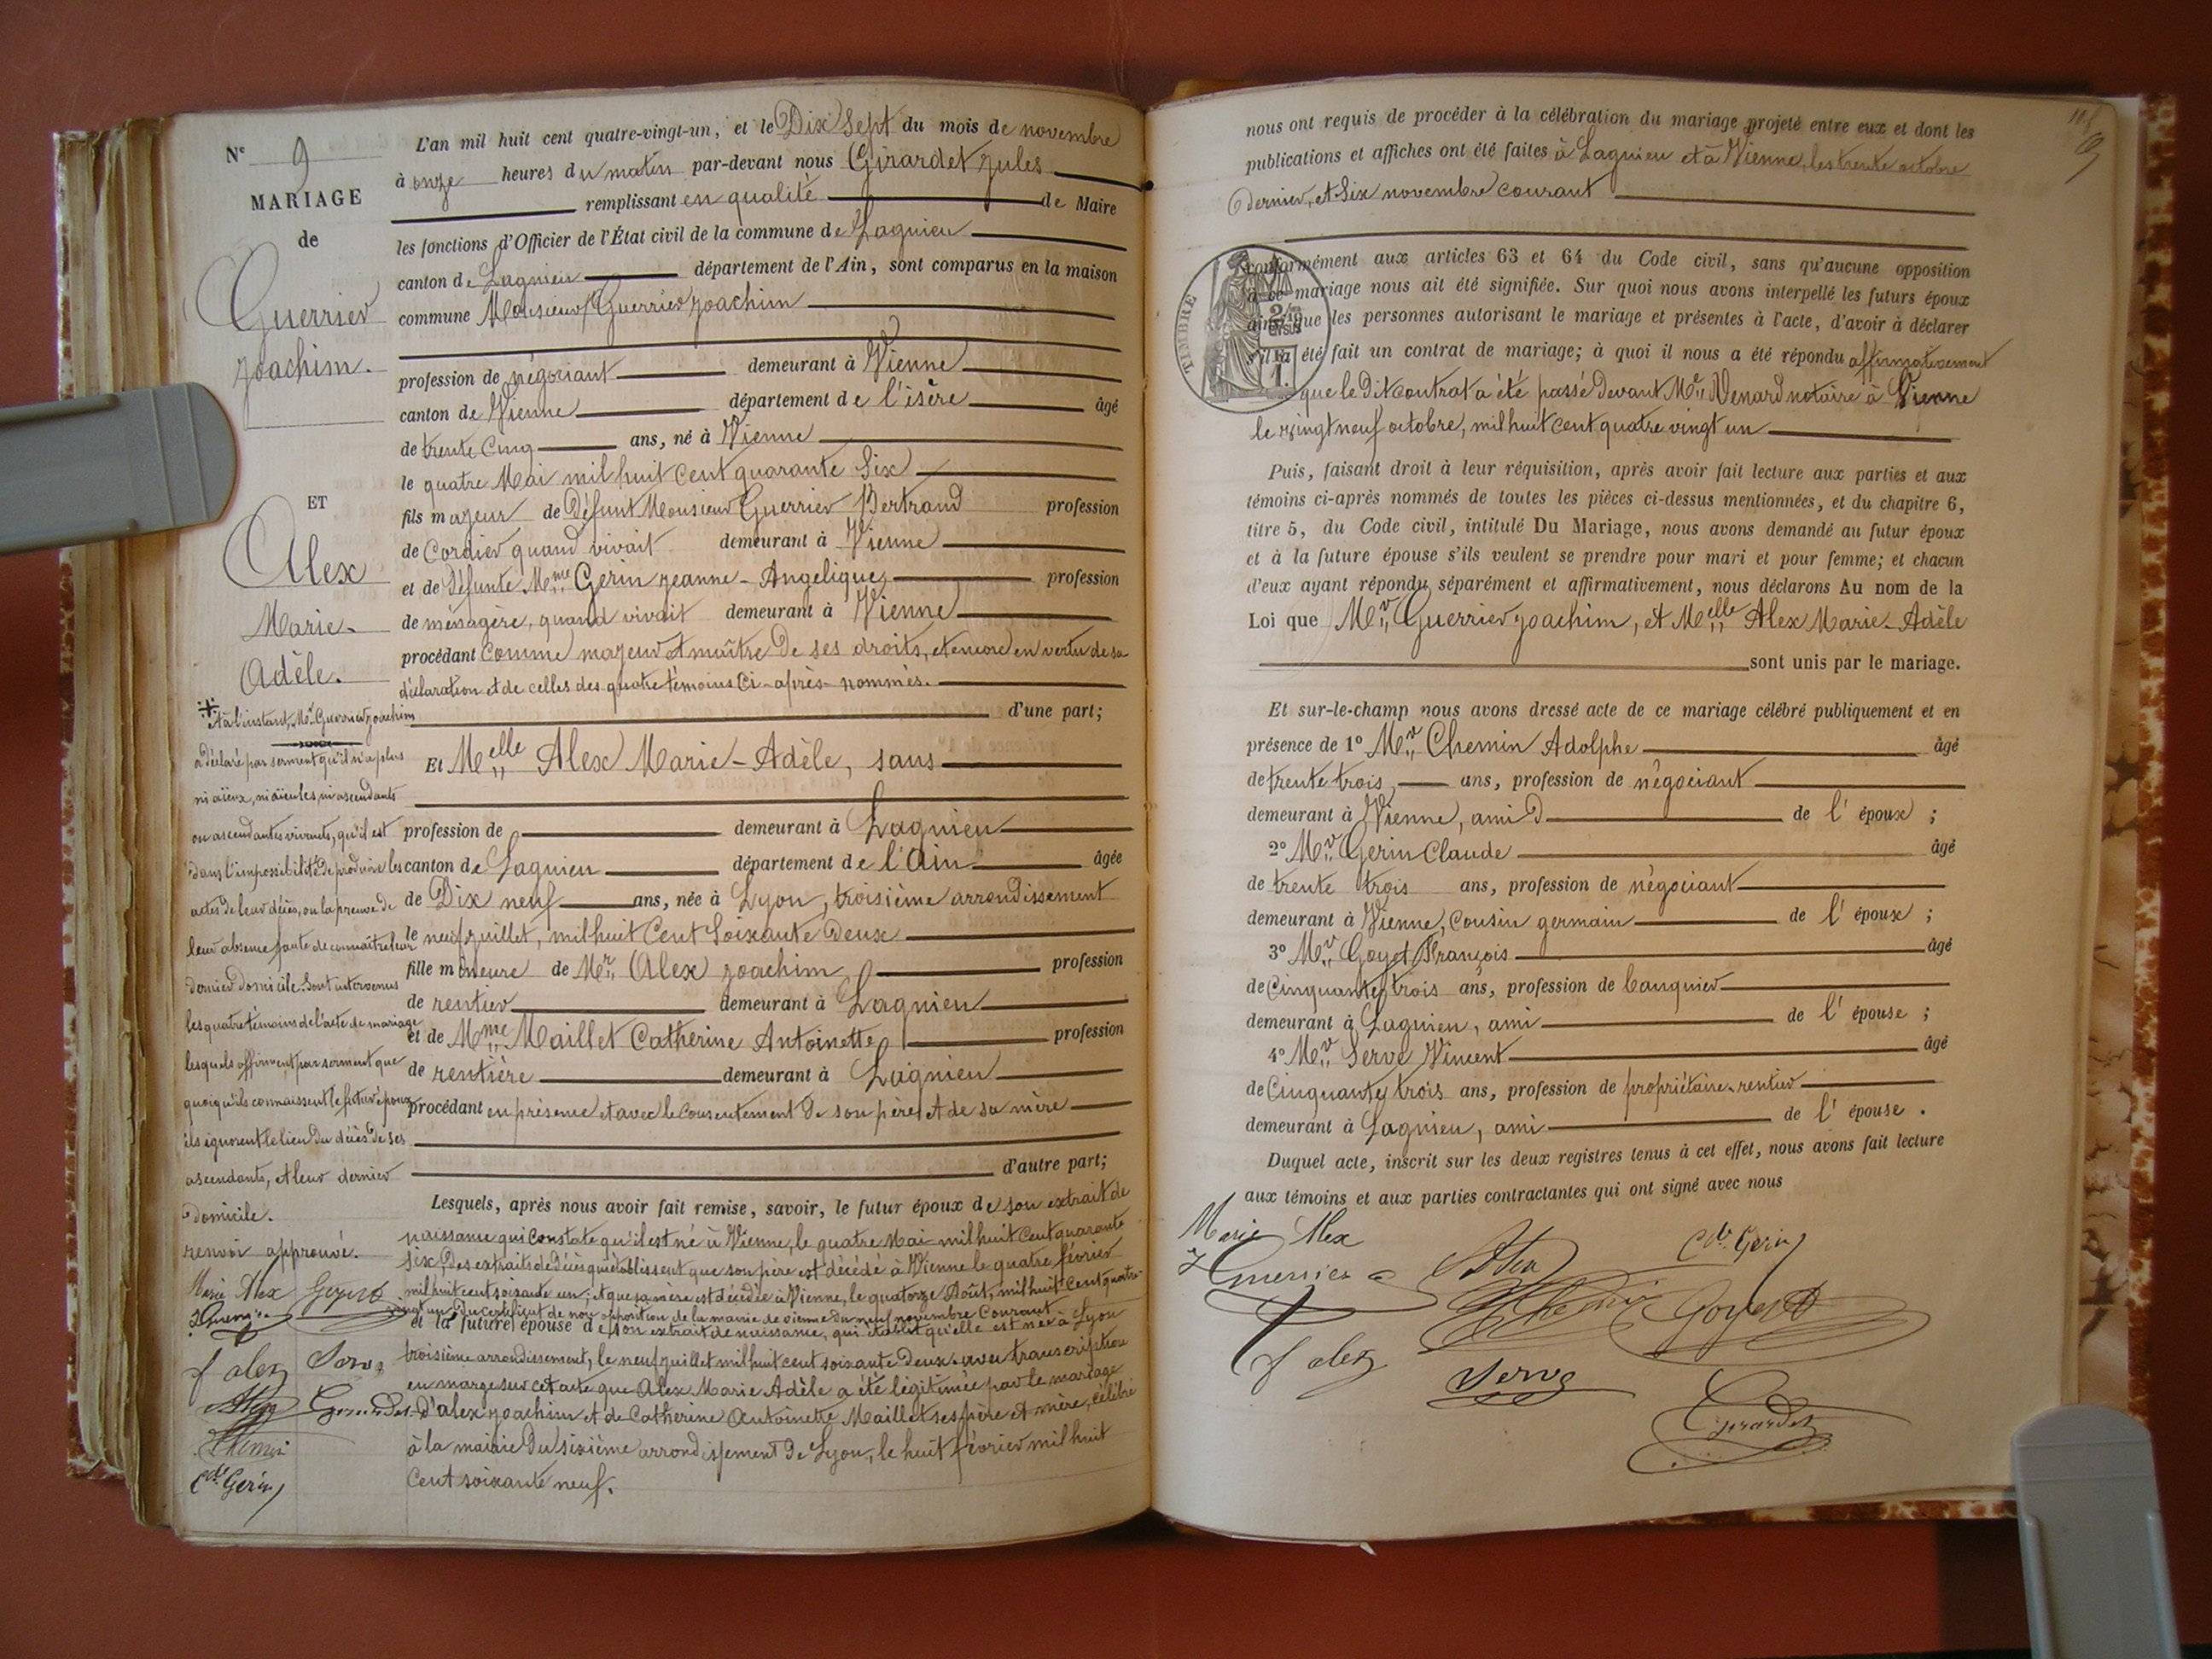 N° 9
MARIAGE
de
Guerrier
Joachim.
ET
Alex
Marie-
Adèle.
L'an mil huit cent quatre-vingt-un, et le Dix Sept du mois de novembre
à onze heures du matin par-devant nous Girardet Jules
remplissant en qualité de Maire
les fonctions d'Officier de l'État civil de la commune de Lagnieu
canton de Lagnieu département de l'Ain, sont comparus en la maison
commune Monsieur Guerrier Joachim
profession de négociant demeurant à Vienne
canton de Vienne département de l'isère âgé
de trente Cinq ans, né à Vienne
le quatre Mai mil huit Cent quarante Six
fils majeur de Défunt Monsieur Guerrier Bertrand profession
de Cordier quand vivait demeurant à Vienne
et de Défunte Mme Gerin Jeanne-Angélique profession
de ménagère, quand vivait demeurant à Vienne
procédant Comme majeur et maître de ses droits, et encore en vertu de sa
déclaration et de celles des quatre témoins Ci-après-nommés.
d'une part;
Et Melle Alex Marie-Adèle, sans
profession de demeurant à Lagnieu
canton de Lagnieu département de l'Ain âgée
de Dix neuf ans, née à Lyon, troisième arrondissement
le neuf juillet, mil huit Cent Soixante Deux
fille mineure de Mr Alex Joachim profession
de rentier demeurant à Lagnieu
et de Mme Maillet Catherine Antoinette profession
de rentière demeurant à Lagnieu
procédant en présence et avec le Consentement de son père et de sa mère
d'autre part;
Lesquels, après nous avoir fait remise, savoir, le futur époux de son extrait de
naissance qui constate qu'il est né à Vienne, le quatre Mai mil huit Cent quarante
six, Des extraits de Décès qui établissent que son père est décédé à Vienne le quatre février
mil huit cent soixante un, et que sa mère est décédée à Vienne, le quatorze Août, mil huit Cent quatre-
vingt un, Du certificat de non opposition de la mairie de Vienne du neuf novembre Courant
et la future épouse de son extrait de naissance, qui établit qu'elle est née à Lyon
troisième arrondissement, le neuf juillet mil huit cent soixante Deux avec transcription
en marge sur cet acte que Alex Marie Adèle a été légitimée par le mariage
d'alex Joachim et de Catherine Antoinette Maillet ses père et mère, célébré
à la mairie Du sixième arrondissement de Lyon, le huit février mil huit
Cent soixante neuf.
+ et à l'instant, Mr Guerrier Joachim
a Déclaré par serment qu'il n'a plus
ni aïeux, ni aïeules, ni ascendants
ou ascendantes vivants, qu'il est
Dans l'impossibilité de produire les
actes de leur décès, ou la preuve de
leur absence faute de connaître leur
Dernier Domicile. Sont intervenus
les quatre témoins de l'acte de mariage
lesquels affirment par serment que
quoiqu'ils connaissent le futur époux
ils ignorent le lieu du décès de ses
ascendants, et leur dernier
Domicile.
renvoi approuvé.
Marie Alex Goyet
J Guerrier
f alex Serve
Alex Girardet
Chemin
Cde Gerin
nous ont requis de procéder à la célébration du mariage projeté entre eux et dont les
publications et affiches ont été faites à Lagnieu et à Vienne, les trente octobre
dernier, et Six novembre courant
TIMBRE
conformément aux articles 63 et 64 du Code civil, sans qu'aucune opposition
à ce mariage nous ait été signifiée. Sur quoi nous avons interpellé les futurs époux
ainsi que les personnes autorisant le mariage et présentes à l'acte, d'avoir à déclarer
s'il a été fait un contrat de mariage; à quoi il nous a été répondu affirmativement
que le Dit contrat a été passé Devant Mr Venard notaire à Vienne
le vingt neuf octobre, mil huit cent quatre vingt un
Puis, faisant droit à leur réquisition, après avoir fait lecture aux parties et aux
témoins ci-après nommés de toutes les pièces ci-dessus mentionnées, et du chapitre 6,
titre 5, du Code civil, intitulé Du Mariage, nous avons demandé au futur époux
et à la future épouse s'ils veulent se prendre pour mari et pour femme; et chacun
d'eux ayant répondu séparément et affirmativement, nous déclarons Au nom de la
Loi que Mr Guerrier Joachim, et Melle Alex Marie-Adèle
sont unis par le mariage.
Et sur-le-champ nous avons dressé acte de ce mariage célébré publiquement et en
présence de 1° Mr Chemin Adolphe âgé
de trente trois ans, profession de négociant
demeurant à Vienne, ami de l'époux;
2° Mr Gerin Claude âgé
de trente trois ans, profession de négociant
demeurant à Vienne, Cousin germain de l'époux;
3° Mr Goyet François âgé
de Cinquante trois ans, profession de banquier
demeurant à Lagnieu, ami de l'épouse;
4° Mr Serve Vincent âgé
de Cinquante trois ans, profession de propriétaire-rentier
demeurant à Lagnieu, ami de l'épouse.
Duquel acte, inscrit sur les deux registres tenus à cet effet, nous avons fait lecture
aux témoins et aux parties contractantes qui ont signé avec nous
Marie Alex
J Guerrier Alex Cde Gerin
Chemin Goyet
f alex Serve
Girardet